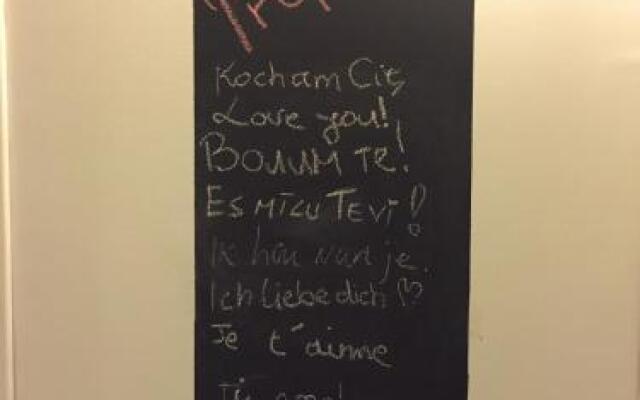 Kocham Cię
Love you!
Волим те!
Es mīlu Tevi!
Ik hou van je.
Ich liebe dich ♡
Je t'aimme